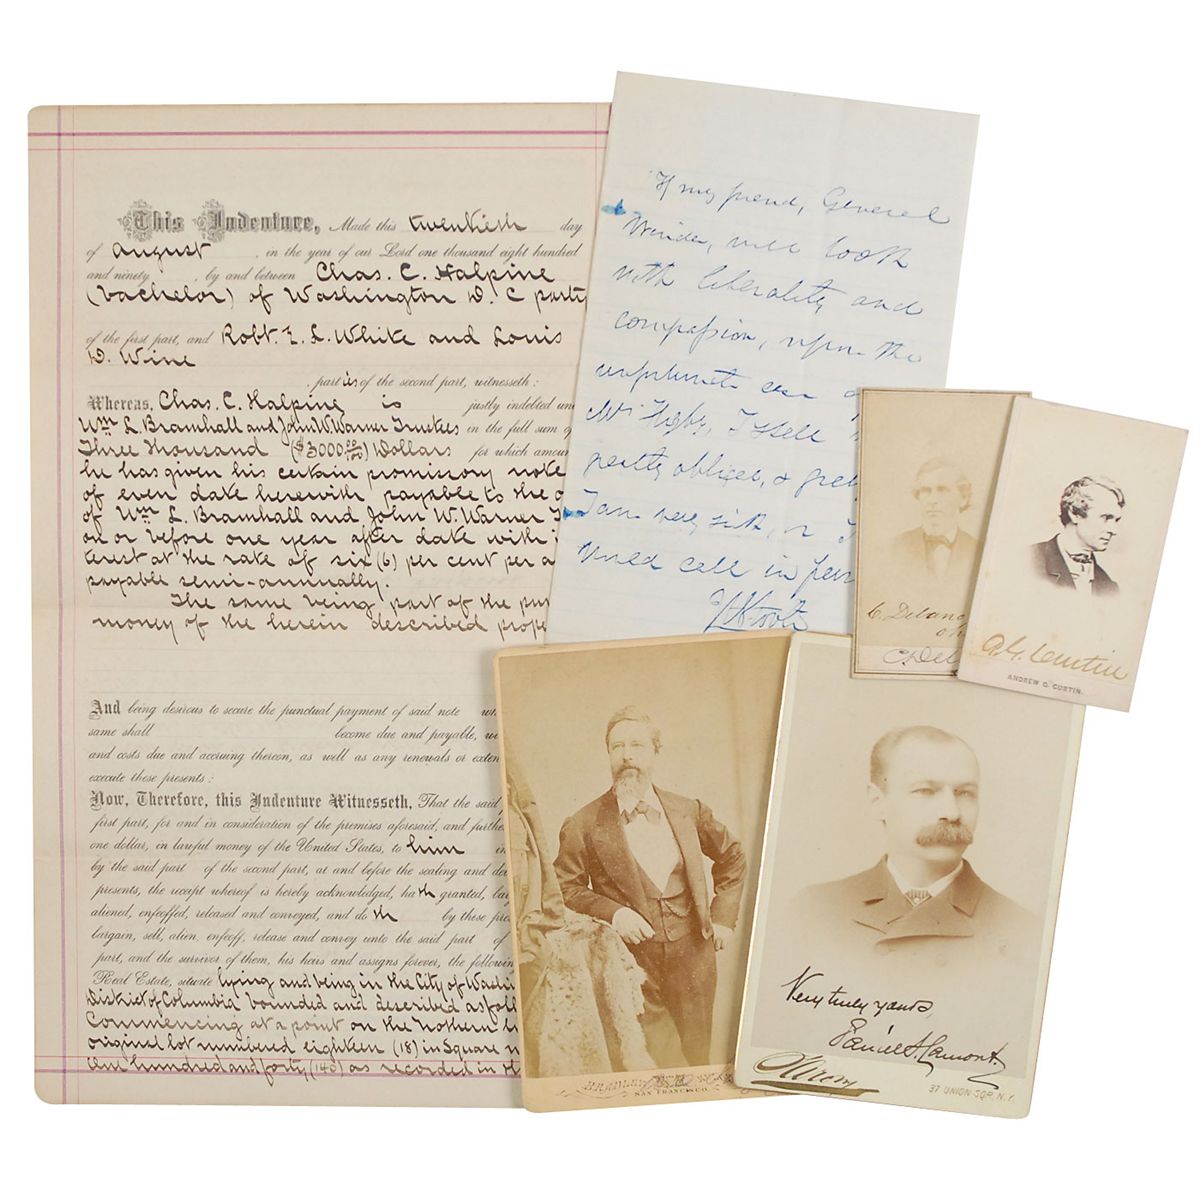 This Indenture, Made this twentieth day
of August in the year of our Lord one thousand eight hundred
and ninety, by and between Chas. C. Halpine
(bachelor) of Washington D. C party
of the first part, and Robt. E. L. White and Louis
D. Wine
, parties of the second part, witnesseth:
Whereas, Chas. C. Halpine is justly indebted un
Wm L. Bramhall and John W. Warner Trustees in the full sum of
Three Thousand ($3000 00/100) Dollars for which amoun
he has given his certain promissory note
of even date herewith, payable to the o
of Wm L. Bramhall and John W. Warner T
on or before one year after date with i
terest at the rate of six (6) per cent per a
payable semi-annually.
The same being part of the pu
money of the herein described prope
And being desirous to secure the punctual payment of said note wh
same shall become due and payable, wi
and costs due and accruing thereon, as well as any renewals or exten
execute these presents:
Now, Therefore, this Indenture Witnesseth, That the said
first part, for and in consideration of the premises aforesaid, and further
one dollar, in lawful money of the United States, to him in
by the said part of the second part, at and before the sealing and del
presents, the receipt whereof is hereby acknowledged, hath granted, barg
aliened, enfeoffed, released and conveyed, and doth by these pre
bargain, sell, alien, enfeoff, release and convey unto the said part of
part, and the survivor of them, his heirs and assigns forever, the followin
Real Estate, situate lying and being in the City of Washi
District of Columbia bounded and described as foll
Commencing at a point on the Northern li
original lot numbered eighteen (18) in Square n
one hundred and forty, (140) as recorded in th
If my friend, General
Winder, will look
with liberality and
compassion, upon the
unfortunate case of
Mr Higby, I shall
greatly obliged, & gre
I am very sick, or I
would call in per
H S Foote
C. Delano
Ohio
C. Del
A. G. Curtin
ANDREW G. CURTIN.
BRADLEY
SAN FRANCISCO.
Very truly yours,
Daniel S. Lamont
Sarony
37 UNION SQR, N.Y.